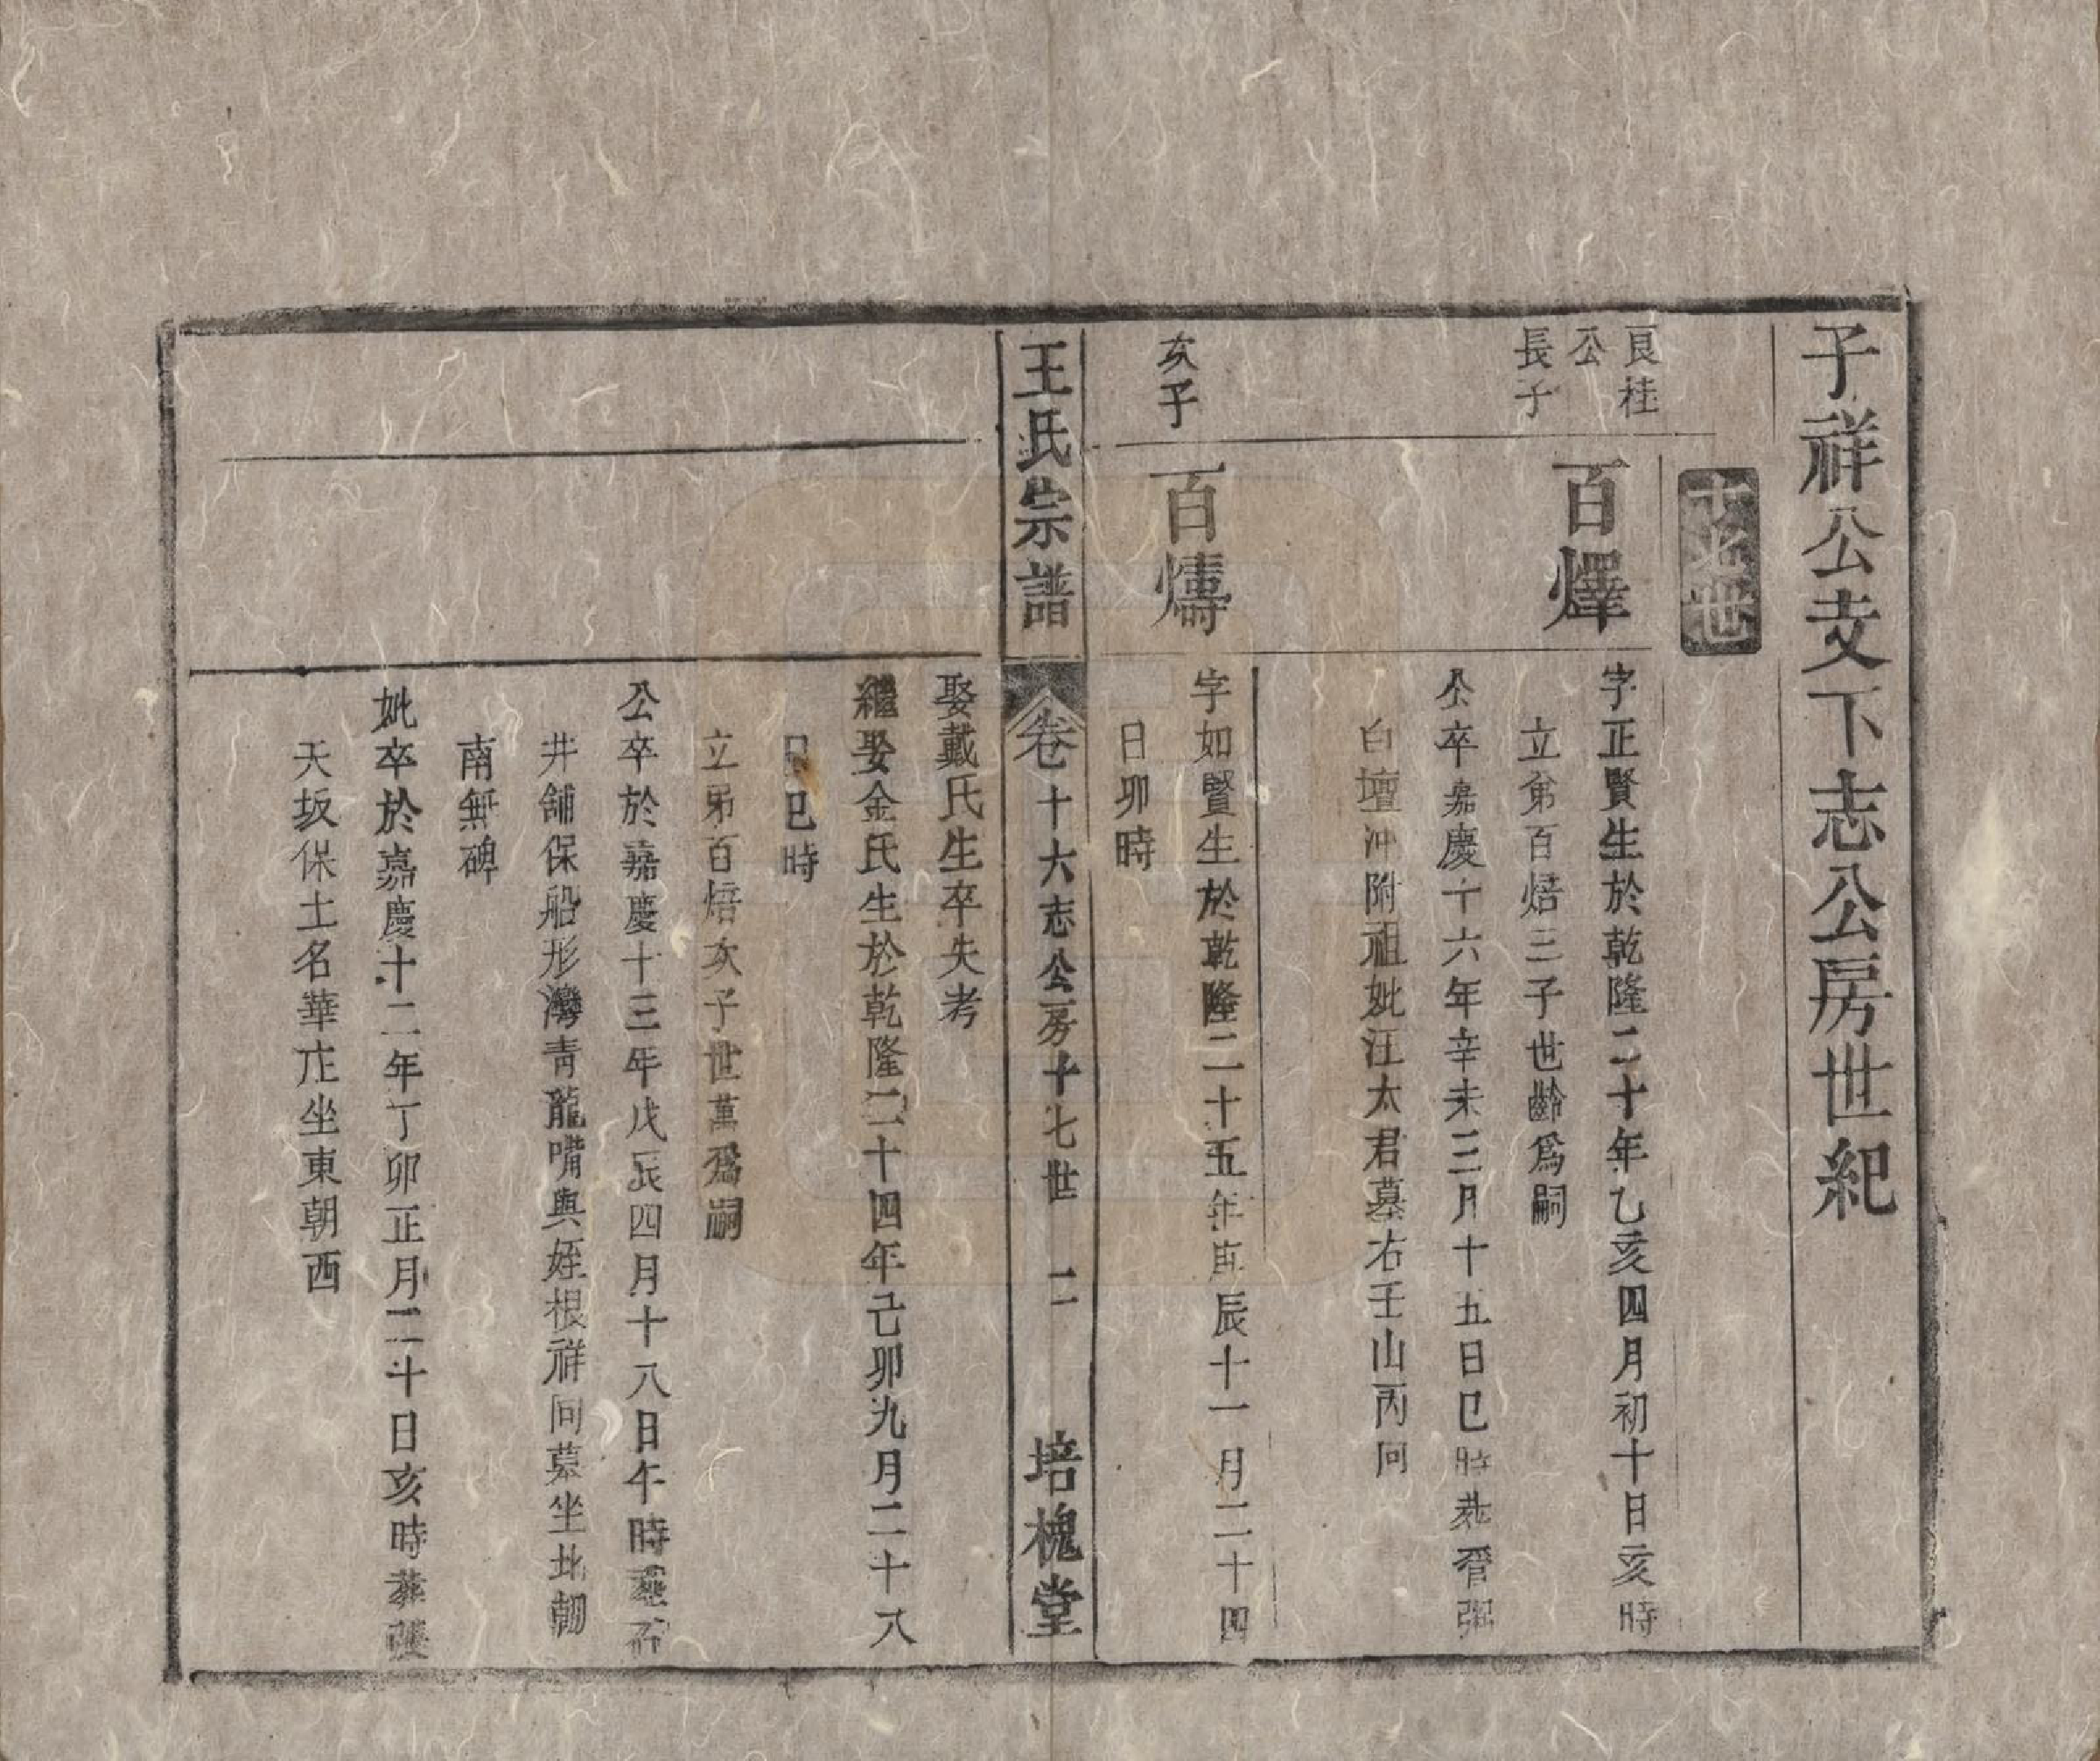 子祥公支下志公房世紀
十七世
良桂
公
長子
百燡
字正賢生於乾隆二十年乙亥四月初十日亥時
立弟百焙三子世齡爲嗣
公卒嘉慶十六年辛未三月十五日巳時葬晉張
白壇冲附祖妣汪太君墓右壬山丙向
次子
百燽
字如賢生於乾隆二十五年庚辰十一月二十四
日卯時
王氏宗譜
卷十六志公房十七世 二 培槐堂
娶戴氏生卒失考
繼娶金氏生於乾隆二十四年己卯九月二十八
日巳時
立弟百焙次子世萬爲嗣
公卒於嘉慶十三年戊辰四月十八日午時葬石
井舖保船形灣青龍嘴與姪根祥同墓坐北朝
南無碑
妣卒於嘉慶十二年丁卯正月二十日亥時葬張
天坂保土名華庄坐東朝西